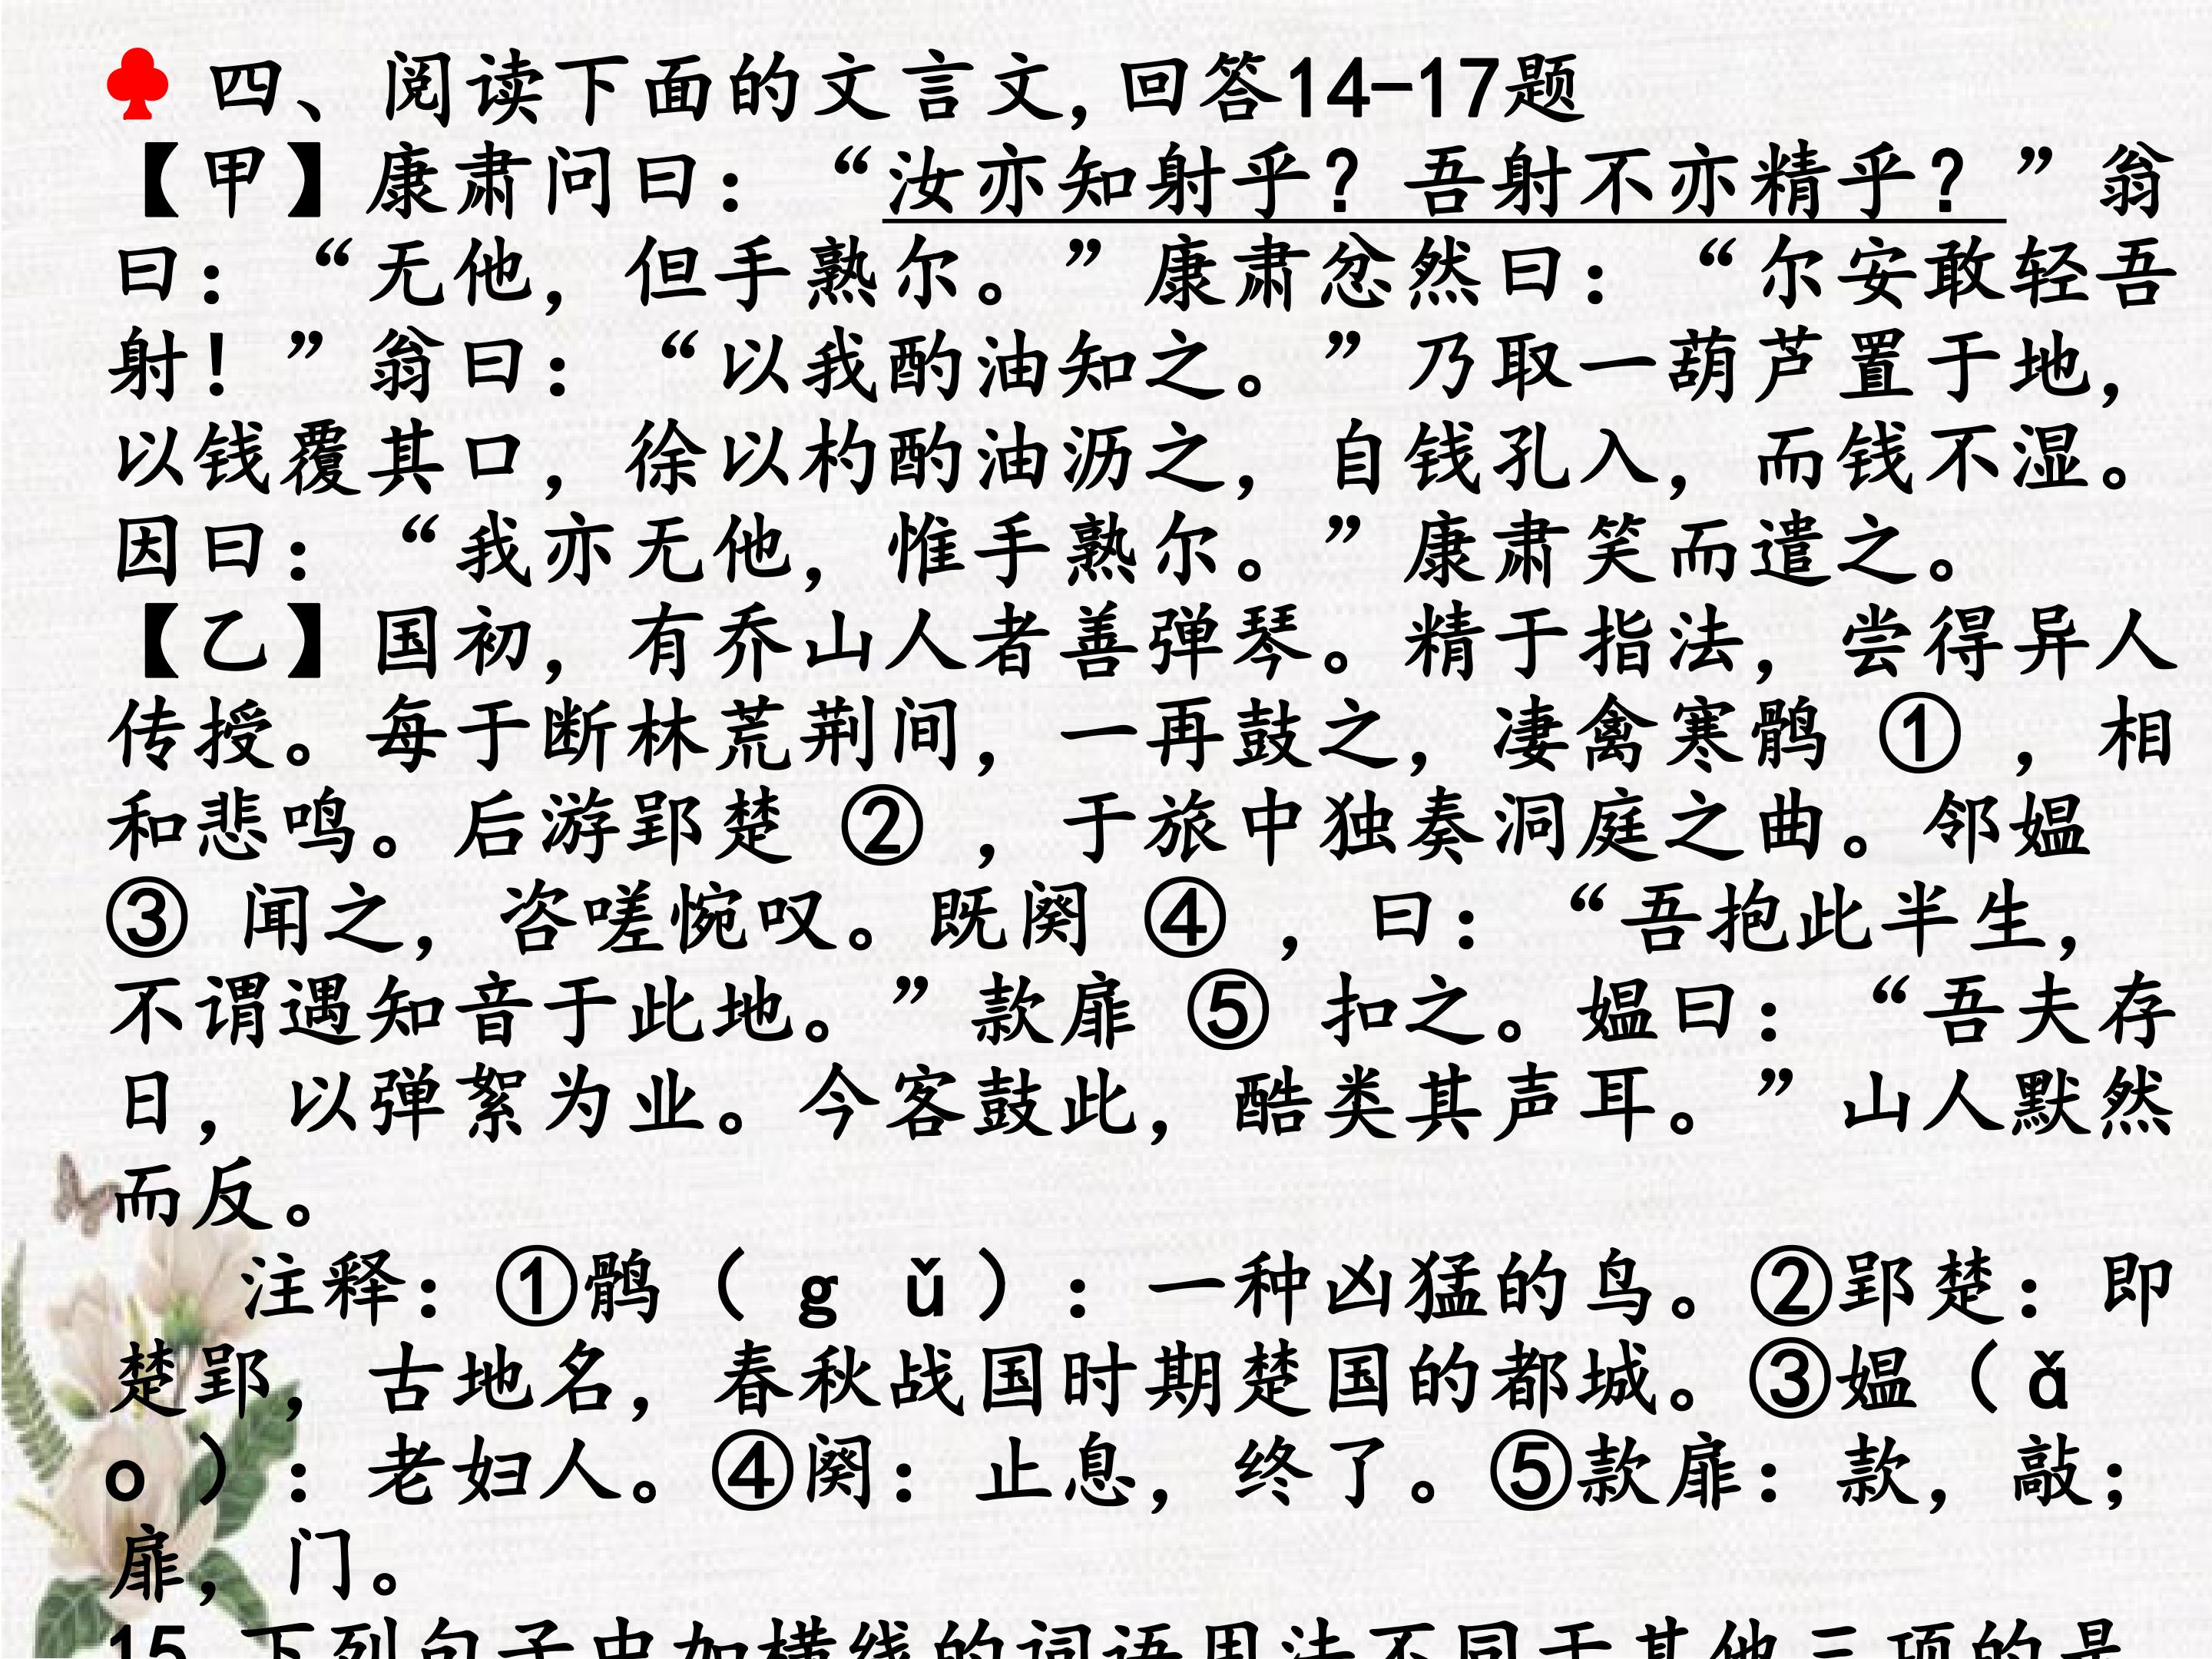 ♣ 四、阅读下面的文言文,回答14-17题
【甲】康肃问曰：“汝亦知射乎？吾射不亦精乎？”翁
曰：“无他，但手熟尔。”康肃忿然曰：“尔安敢轻吾
射！”翁曰：“以我酌油知之。”乃取一葫芦置于地，
以钱覆其口，徐以杓酌油沥之，自钱孔入，而钱不湿。
因曰：“我亦无他，惟手熟尔。”康肃笑而遣之。
【乙】国初，有乔山人者善弹琴。精于指法，尝得异人
传授。每于断林荒荆间，一再鼓之，凄禽寒鹘 ① ，相
和悲鸣。后游郢楚 ② ，于旅中独奏洞庭之曲。邻媪
③ 闻之，咨嗟惋叹。既阕 ④ ，曰：“吾抱此半生，
不谓遇知音于此地。”款扉 ⑤ 扣之。媪曰：“吾夫存
日，以弹絮为业。今客鼓此，酷类其声耳。”山人默然
而反。
注释：①鹘（ g ǔ ）：一种凶猛的鸟。②郢楚：即
楚郢，古地名，春秋战国时期楚国的都城。③媪（ ǎ
o ）：老妇人。④阕：止息，终了。⑤款扉：款，敲；
扉，门。
15.下列句子中加横线的词语用法不同于其他三项的是